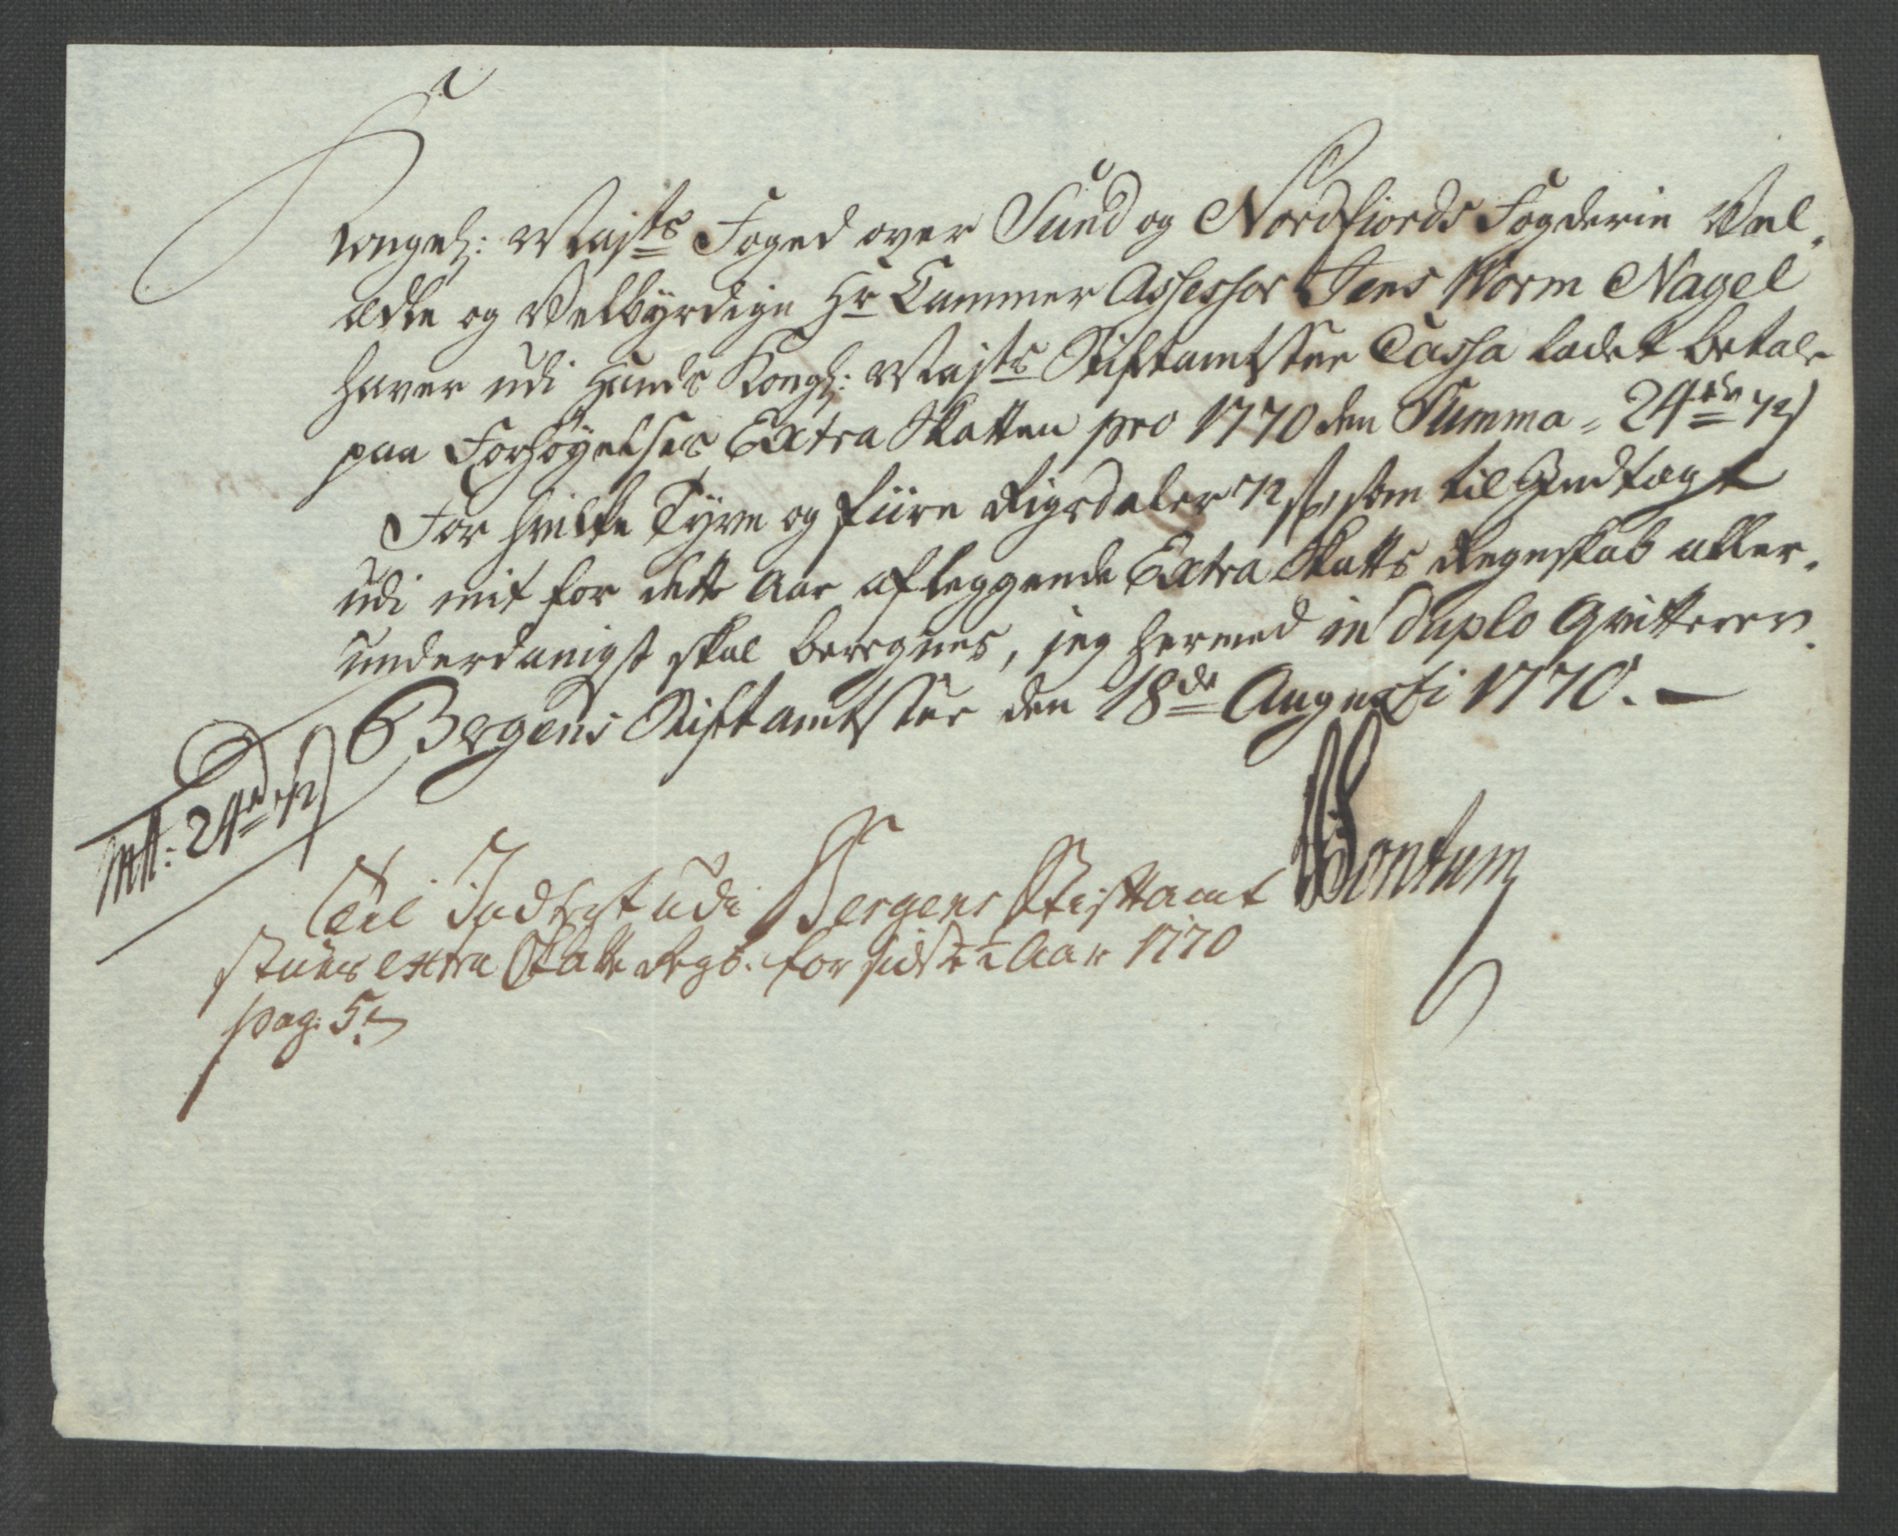 Kongel: Mayts Foged over Sund og Nordfiords Fogderie Vel-
ædle og Velbyrdige Hr Cammer Assessor Jens Worm Nagel
haver udi Hands Kongl: Mayts Stiftamtstue Cassa ladet betale
paa Forhøyelses Extra Skatten pro 1770 den Summa = 24rdr 72 s
For hvilke Tyve og fiire Rigsdaler 72 s, som til Indtægt
udi mit for dette Aar aflæggende Extra Skatts Regnskab aller-
underdanigst skal beregnes, jeg hermed in duplo Qvitterer.
Bergens Stiftamtstue den 18de Augusti 1770. —
24rd 72 s
Bontum
Til Indtegt udi Bergens Stiftamt
stues extra Skatte Regs. for sidste 1/2 Aar 1770
pag: 5.